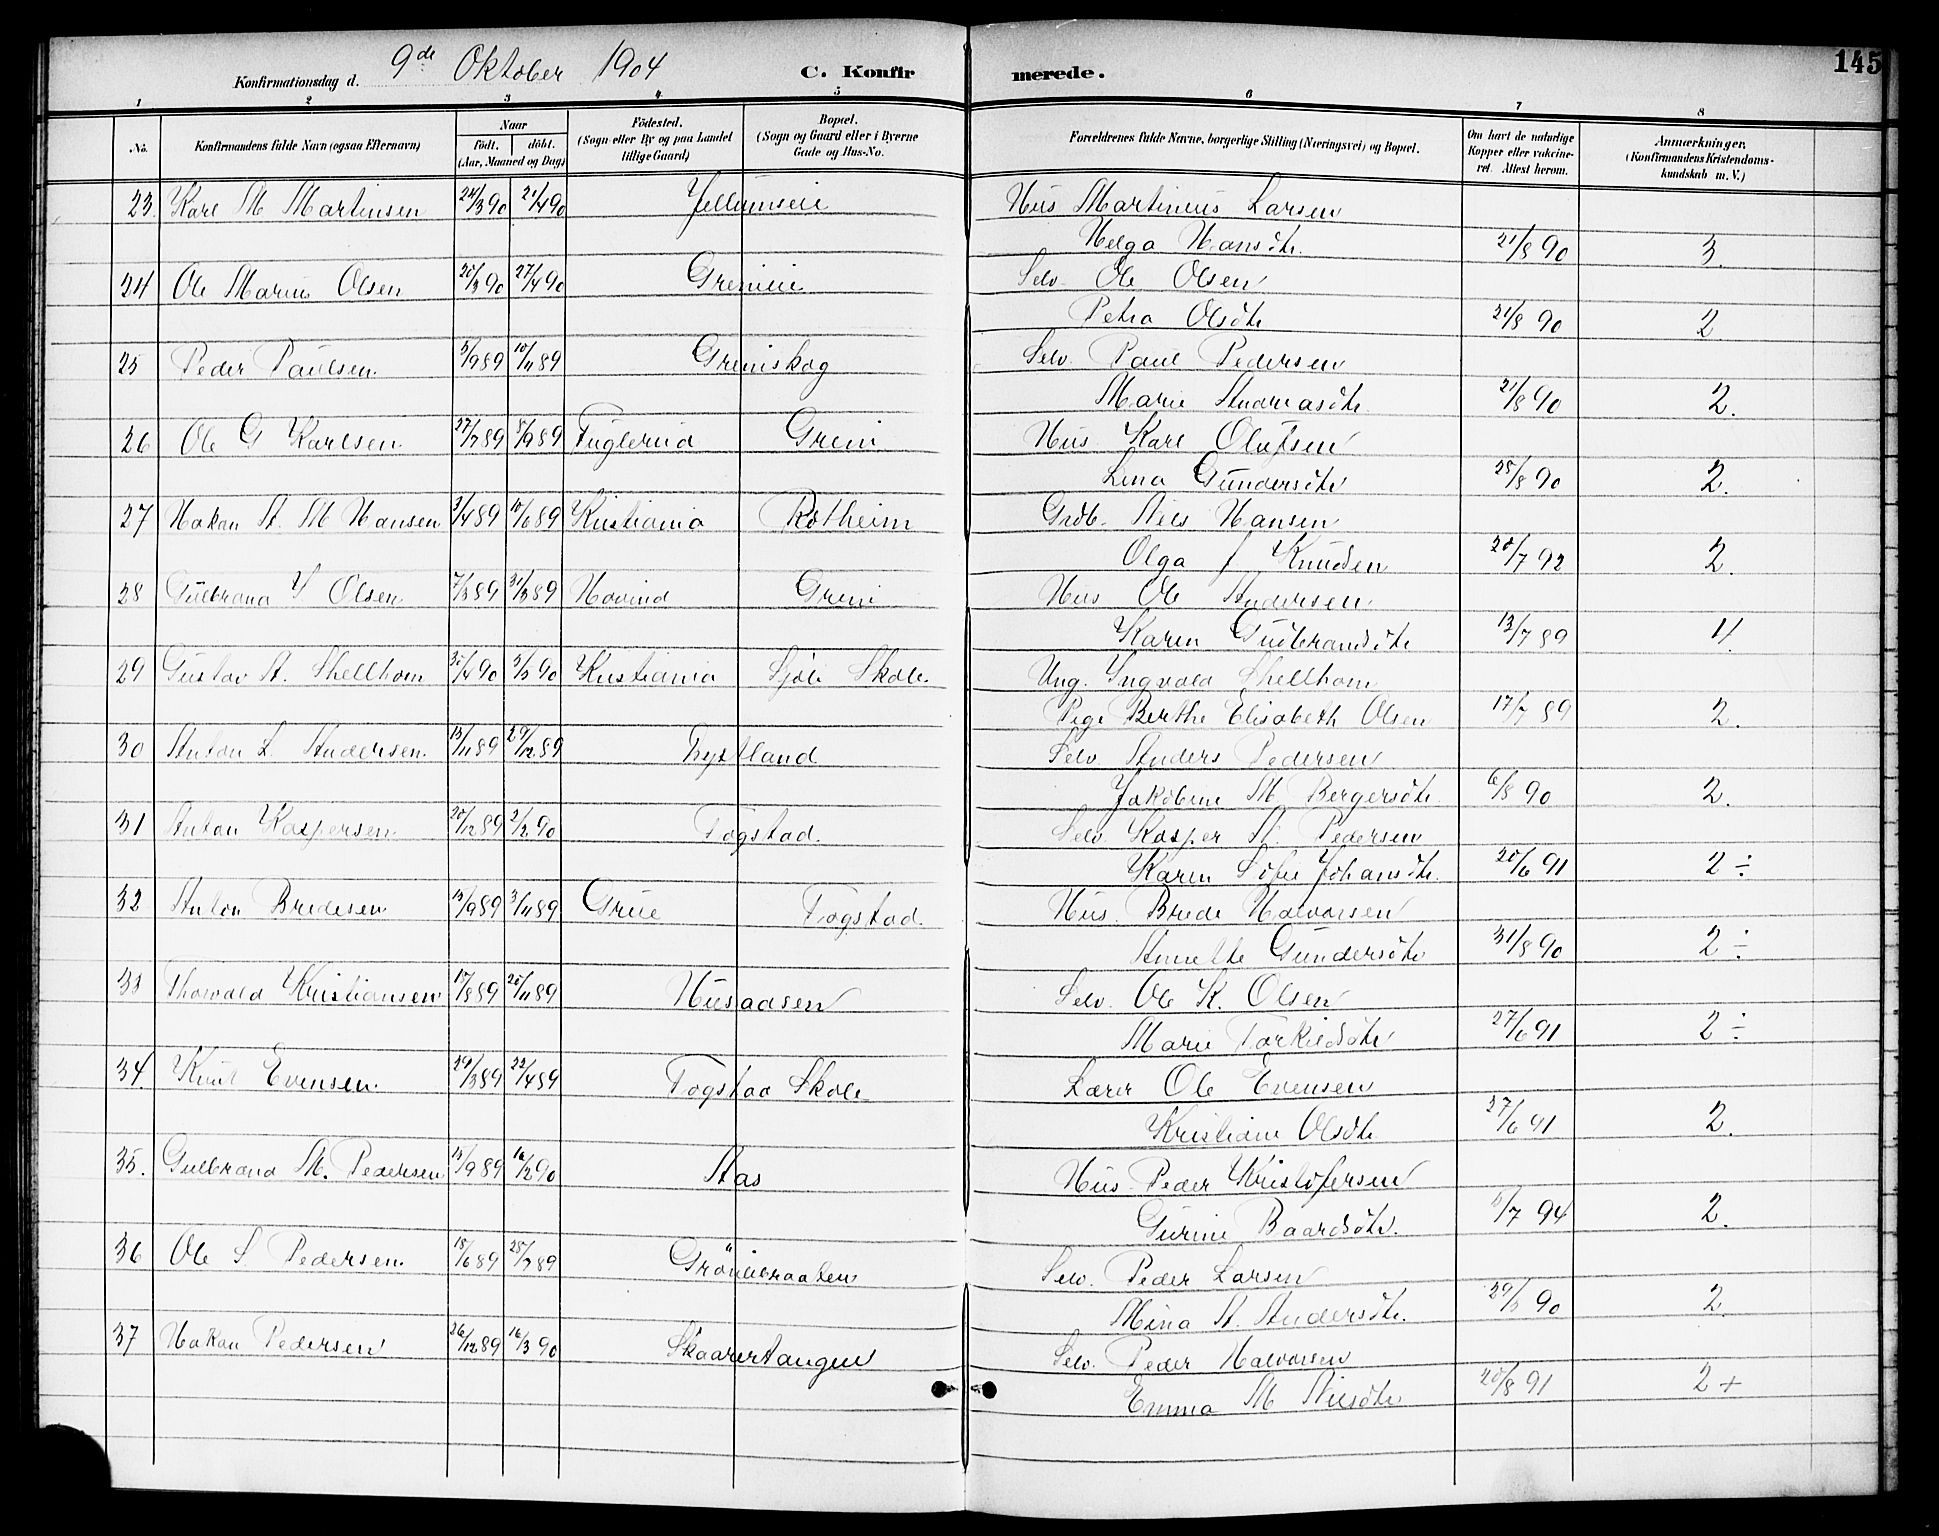 Konfirmationsdag d. 9de Oktober 1904 C. Konfirmerede. 145
1 2 3 4 5 6 7 8
No. Konfirmandens fulde Navn (ogsaa Efternavn) Naar födt. döbt. (Aar, Maaned og Dag) Födested. (Sogn eller By og paa Landet tillige Gaard) Bopæl. (Sogn og Gaard eller i Byerne Gade og Hus-No. Forældrenes fulde Navne, borgerlige Stilling (Næringsvei) og Bopæl. Om havt de naturlige Kopper eller vakcineret. Attest herom. Anmærkninger. (Konfirmandens Kristendomskundskab m. V.)
23 Karl M Martinsen 24/3 90 21/4 90 Jellumseie Hus Martinius Larsen
Helga Hansdtr. 21/8 90 3.
24 Ole Marius Olsen 20/3 90 27/4 90 Grenieie Selv. Ole Olsen
Petra Olsdtr 21/8 90 2
25 Peder Paulsen 5/9 89 10/11 89 Greniskog Selv. Paul Pedersen
Marie Andreasdtr. 21/8 90 2.
26 Ole G Karlsen 27/7 89 8/9 89 Fuglerud Greni Hus. Karl Olufsen
Lina Gundersdtr 25/8 90 2.
27 Hakon A. M Hansen 3/4 89 10/6 89 Kristiania Rotheim Grdb. Nils Hansen
Olga f Knudsen 20/7 92 2.
28 Gulbrand J Olsen 7/3 89 31/3 89 Hovind Greni Hus Ole Andersen
Karen Gudbrandsdtr 13/7 89 4.
29 Gustav A. Shellhorn 30/4 90 Kristiania Sjöli Skole. Ung. Yngvald Shellhorn
Pige Berthe Elisabeth Olsen 17/7 89 2.
30 Anton L. Andersen. 13/11 89 29/12 89 Selv. Anders Pedersen
Jakobine M. Bergersdtr 6/8 90 2.
31 Anton Kaspersen 20/12 89 2/2 90 Togstad. Selv. Kasper A. Pedersen
Karen Sofie Johansdtr. 20/6 91 2 ÷
32 Anton Bredesen 13/9 89 3/11 89 Grue Togstad. Hus. Brede Halvorsen
Annette Gundersdtr 31/8 90 2 ÷
33 Thorvald Kristiansen 17/8 89 20/11 89 Husaasen Selv. Ole K. Olsen
Marie Torkildsdtr 27/6 91 2 ÷
34. Knut Evensen. 29/3 89 22/4 89 Togstad Skole Lærer Ole Evensen
Kristiane Olsdtr 27/6 91 2.
35. Gulbrand M. Pedersen 13/9 89 16/2 90 Aas Hus. Peder Kristofersen
Gurine Baardsdtr. 5/7 94 2.
36 Ole S Pedersen. 18/6 89 28/7 89 Grönebraaten Selv. Peder Larsen
Mina A. Andersdtr. 2.
37 Hakon Pedersen 26/12 89 16/3 90 Skaarertangen Selv. Peder Halvorsen
Emma M Nilsdtr 20/8 91 2 +